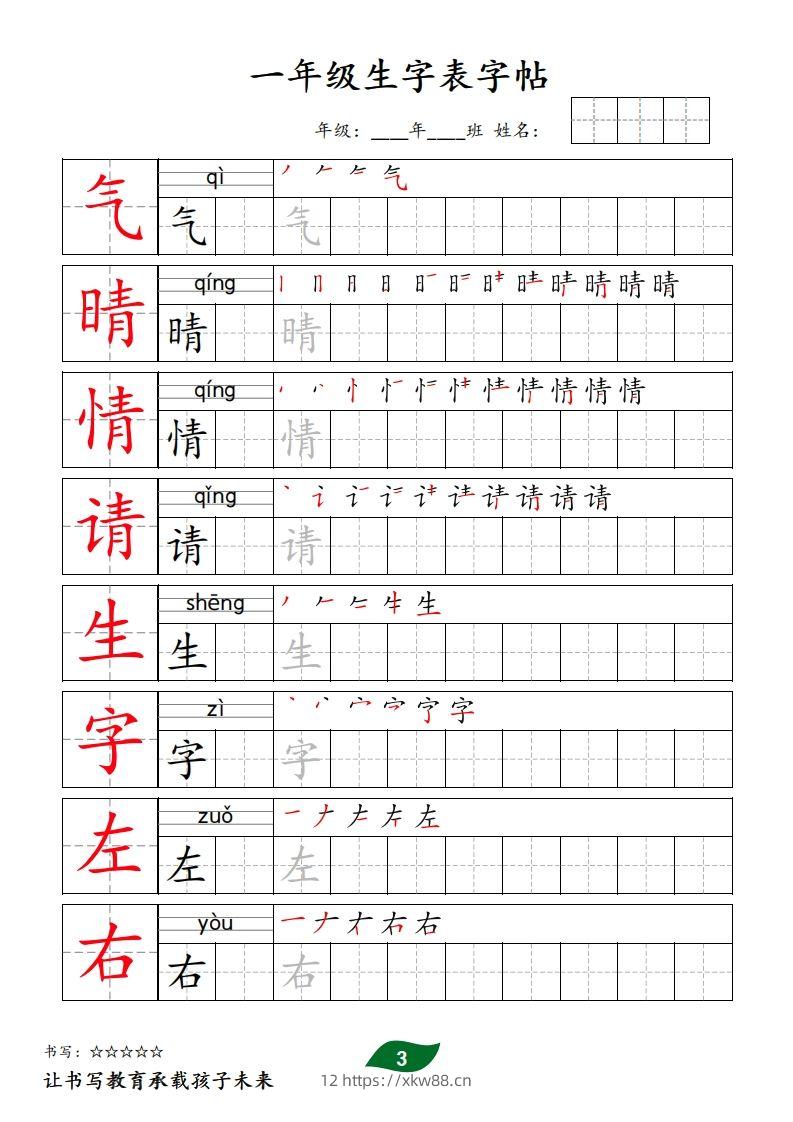 一年级生字表字帖
年级：____年____班 姓名：
气 qì
气 气
晴 qíng
晴 晴
情 qíng
情 情
请 qǐng
请 请
生 shēng
生 生
字 zì
字 字
左 zuǒ
左 左
右 yòu
右 右
书写：☆☆☆☆☆
让书写教育承载孩子未来
3
12 https://xkw88.cn